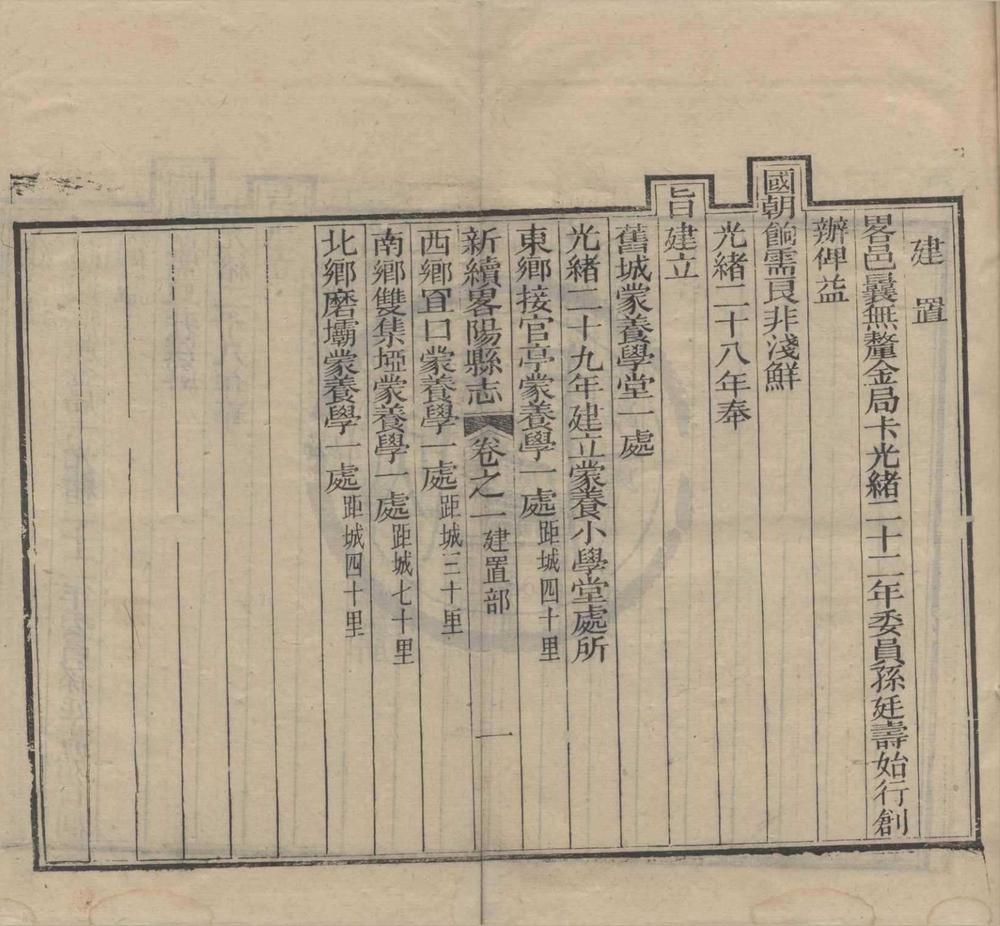 建置
畧邑曩無釐金局卡光緒二十二年委員孫廷壽始行創
辦俾益
國朝餉需良非淺鮮
光緒二十八年奉
旨建立
舊城蒙養學堂一處
光緒二十九年建立蒙養小學堂處所
東鄉接官亭蒙養學一處距城四十里
新續畧陽縣志 卷之一 建置部 一
西鄉罝口蒙養學一處距城三十里
南鄉雙集埡蒙養學一處距城七十里
北鄉磨壩蒙養學一處距城四十里